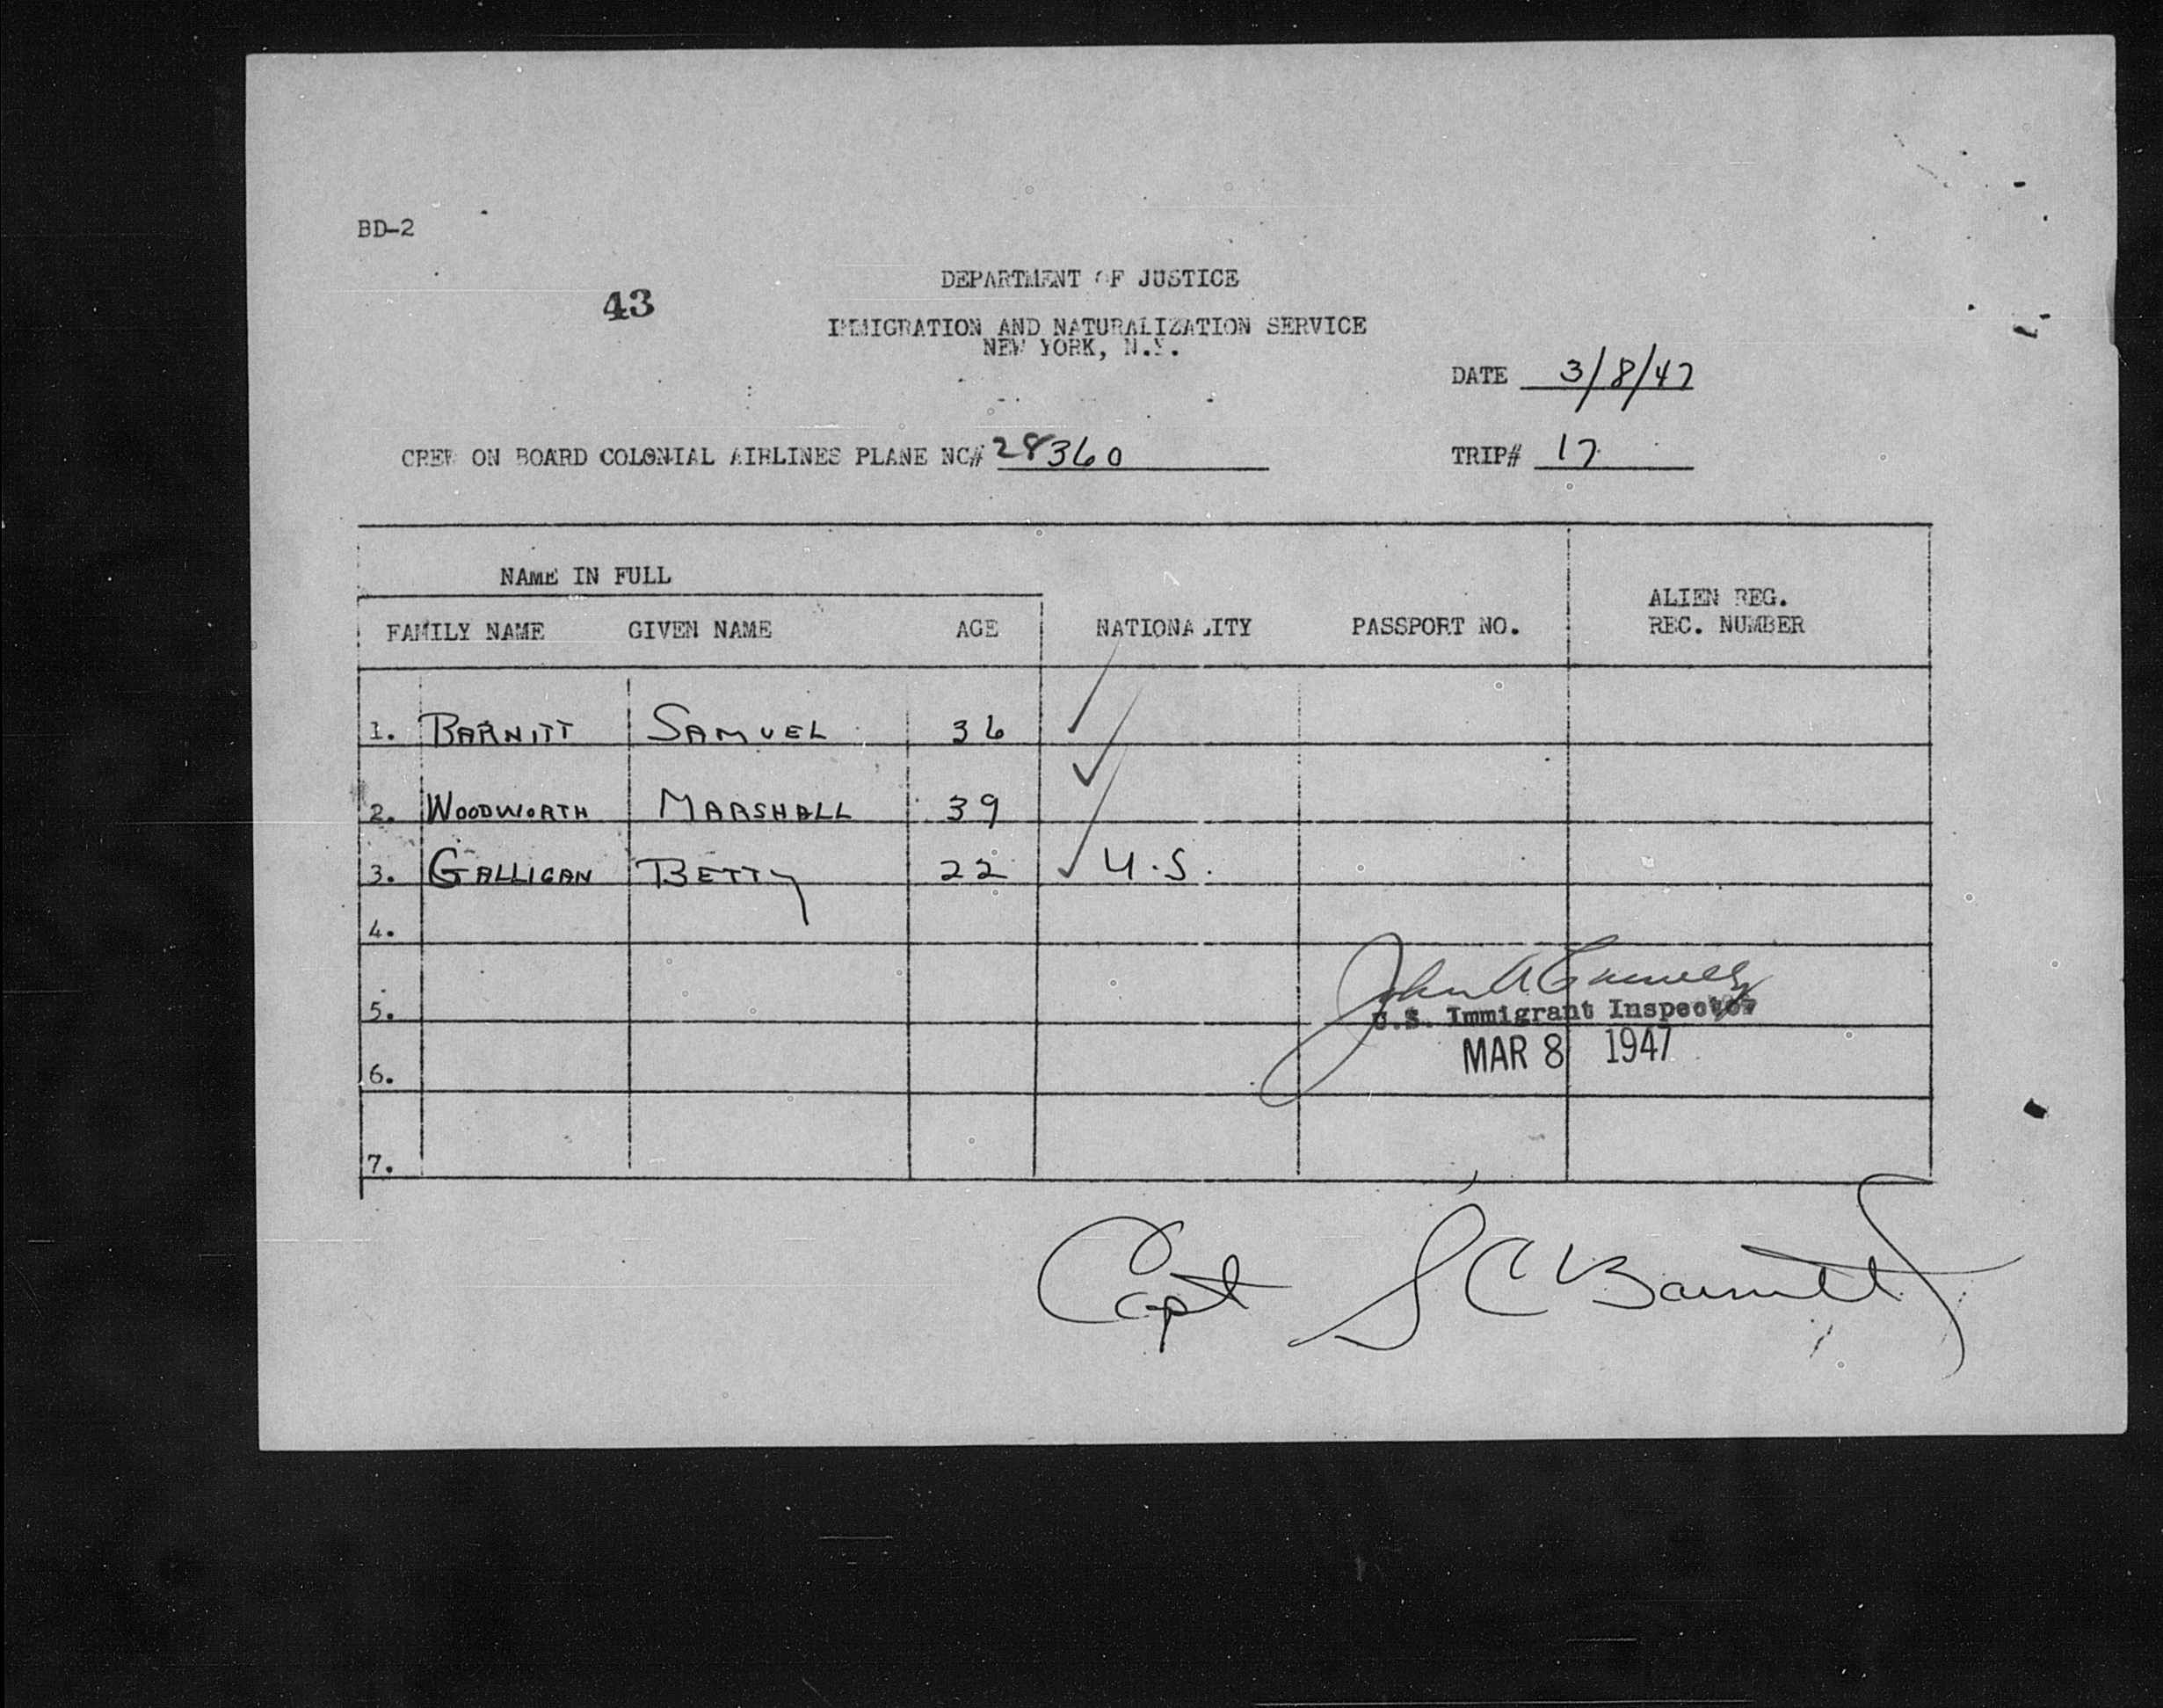 BD-2
43
DEPARTMENT OF JUSTICE
IMMIGRATION AND NATURALIZATION SERVICE
NEW YORK, N.Y.
DATE 3/8/47
CREW ON BOARD COLONIAL AIRLINES PLANE NC# 28360 TRIP# 17
NAME IN FULL
ALIEN REG.
FAMILY NAME GIVEN NAME AGE NATIONALITY PASSPORT NO. REC. NUMBER
1. BARNITT SAMUEL 36
2. WOODWORTH MARSHALL 39
3. GALLIGAN BETTY 22 U.S.
4.
John A
5. U.S. Immigrant Inspector
MAR 8 1947
6.
7.
Capt S C Barnitt